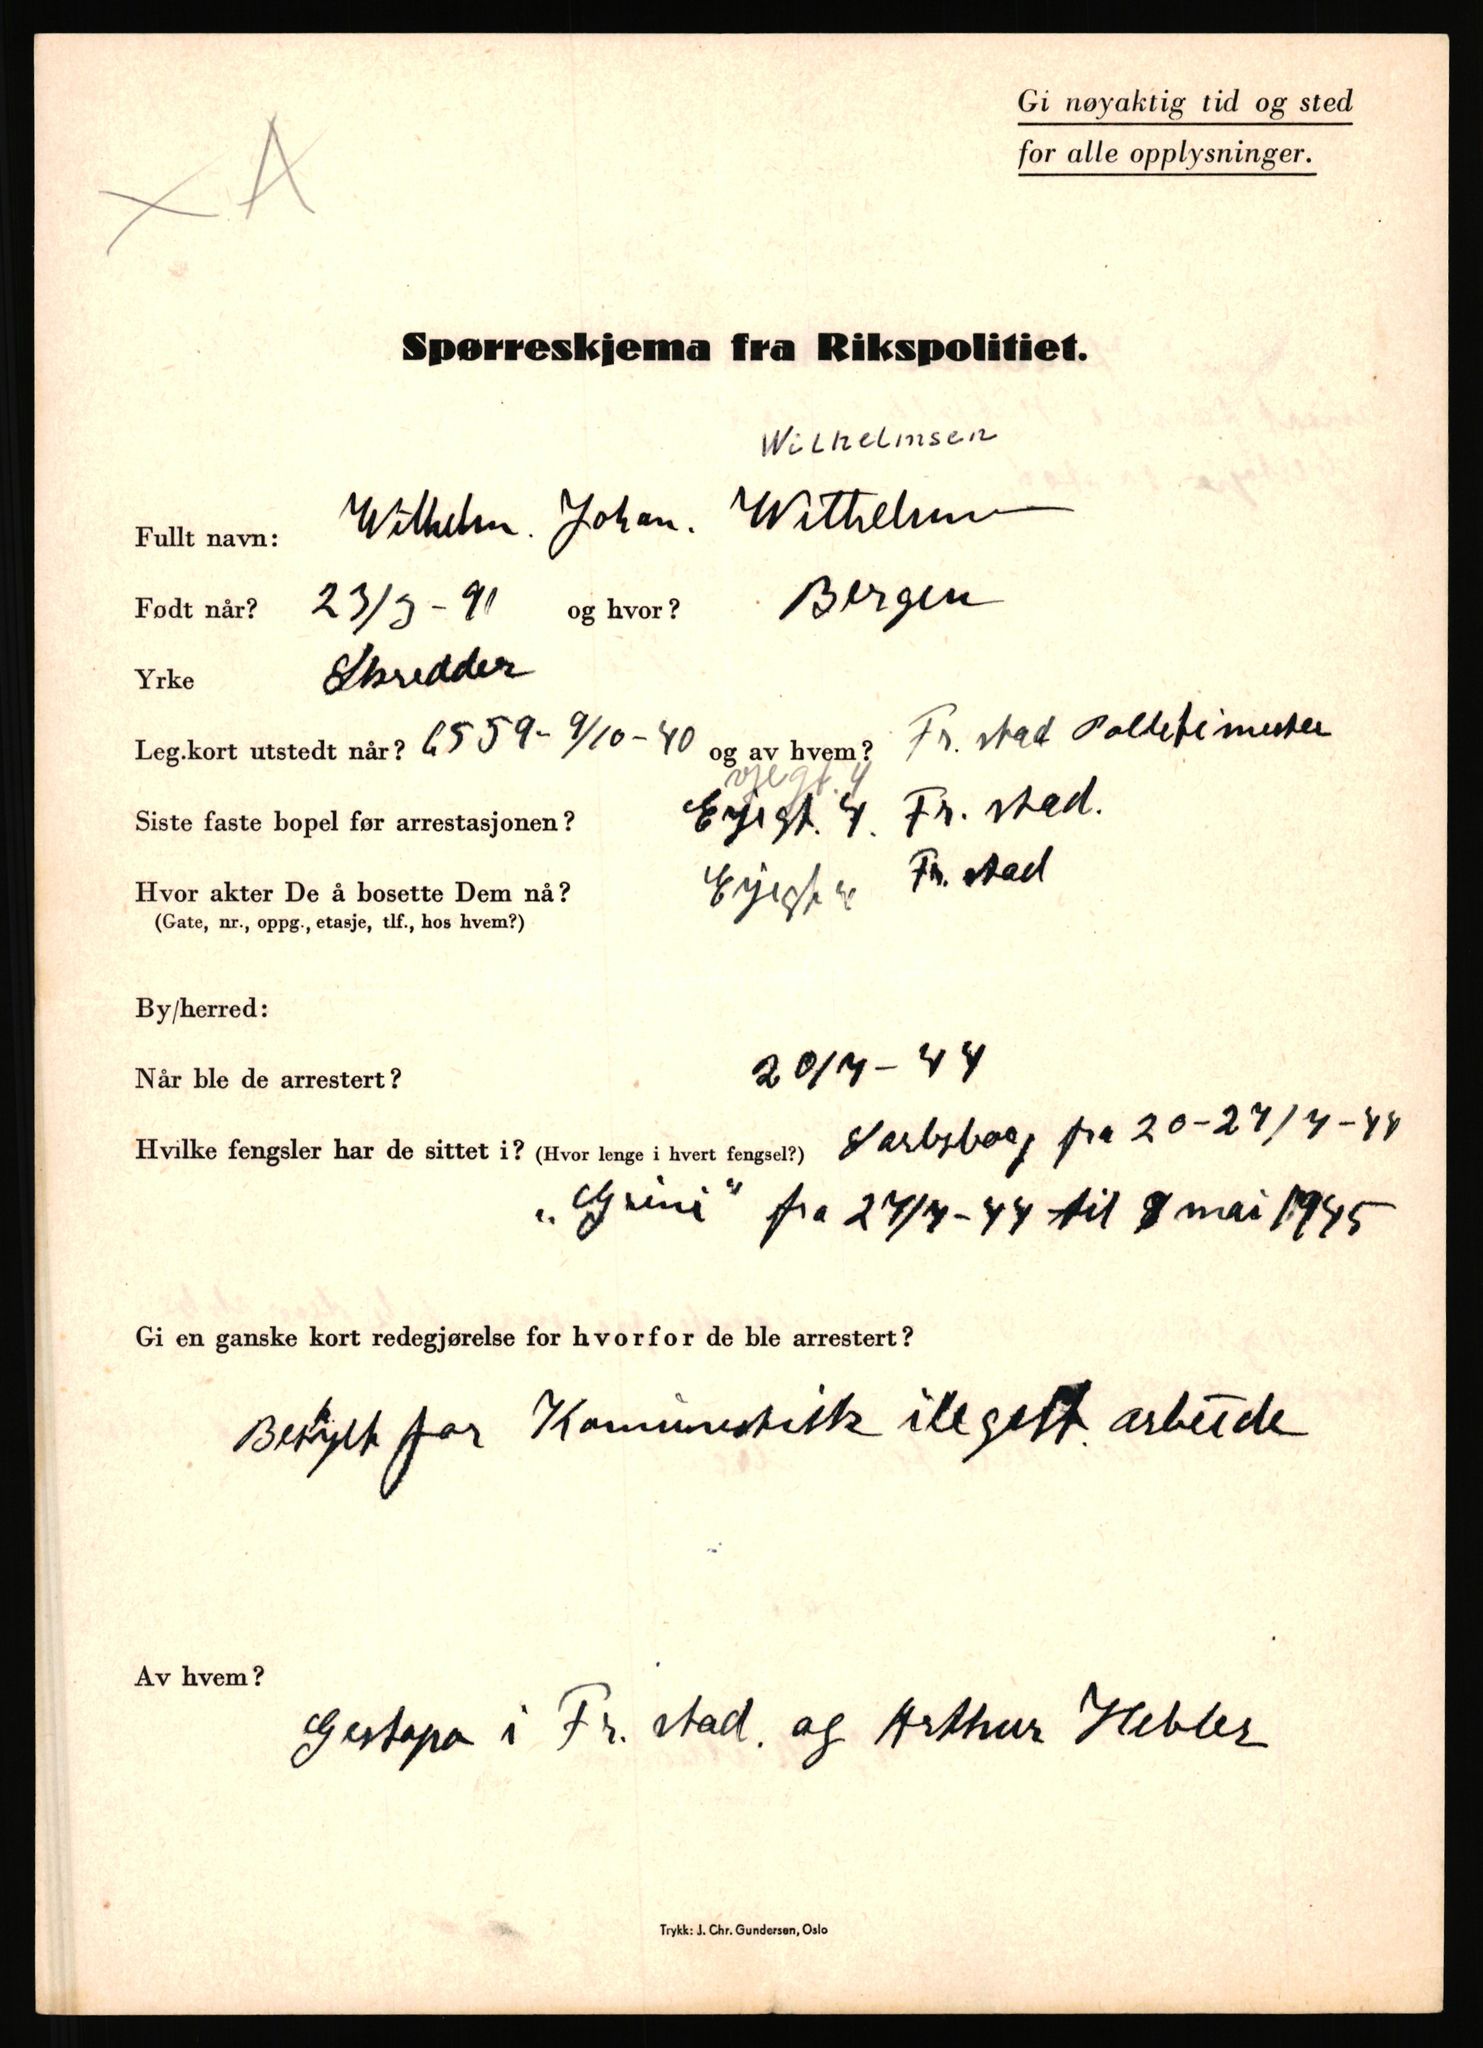 Gi nøyaktig tid og sted
for alle opplysninger.
XA
Spørreskjema fra Rikspolitiet.
Wilhelmsen
Fullt navn: Wilhelm. Johan. Wilhelmsen
Født når? 23/3-91 og hvor? Bergen
Yrke Skredder
Leg.kort utstedt når? 6559-9/10-40 og av hvem? Fr. stad Politimester
Siste faste bopel før arrestasjonen? Fr. stad.
Hvor akter De å bosette Dem nå? Fr. stad
(Gate, nr., oppg., etasje, tlf., hos hvem?)
By/herred:
Når ble de arrestert? 20/4-44
Hvilke fengsler har de sittet i? (Hvor lenge i hvert fengsel?) Sarbsborg fra 20-24/4-44
„Grini" fra 24/4-44 til 8 mai 1945
Gi en ganske kort redegjørelse for hvorfor de ble arrestert?
Beskylt for arbeide
Av hvem?
Gestapo i Fr. stad. og Arthur Hebler
Trykk: J. Chr. Gundersen, Oslo